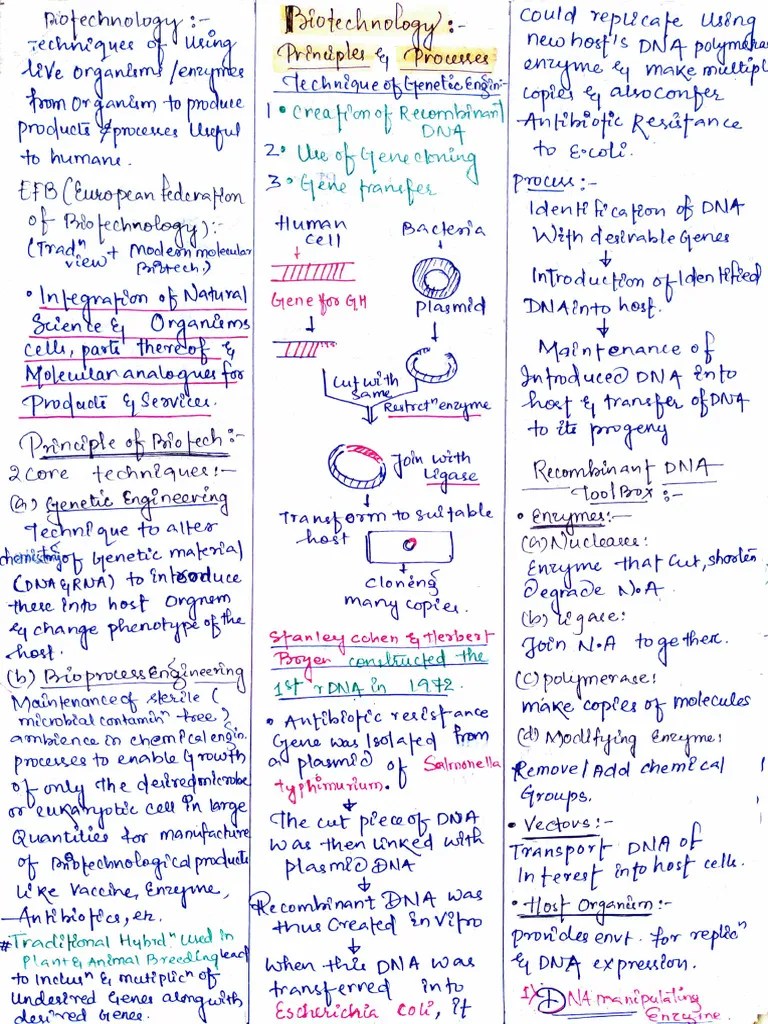 Biotechnology:-
Techniques of Using
live organisms/enzymes
from organism to produce
products & processes useful
to humans.
EFB (European federation
of Biotechnology):-
(Tradn view + Modern molecular
Biotech.)
• Integration of Natural
Science & Organisms
cells, parts thereof &
Molecular analogues for
Products & Services.
Principle of Biotech:-
2 core techniques:-
(a) Genetic Engineering
Technique to alter
chemistry of Genetic material
(DNA & RNA) to introduce
these into host Orgnsm
& change phenotype of the
host.
(b) Bioprocess Engineering
Maintenance of sterile (
microbial contaminn free)
ambience in chemical engin.
processes to enable Growth
of only the desired microbe
or eukaryotic cell in large
Quantities for manufacture
of Biotechnological products
Like Vaccine, Enzyme,
Antibiotics, etc.
# Traditional Hybridn used in
Plant & Animal Breeding lead
to Inclusn & multiplicn of
Undesired Genes along with
desired Genes.
Biotechnology:-
Principles & Processes
Technique of Genetic Engin:-
1• Creation of Recombinant
DNA
2• Use of Gene cloning
3• Gene transfer
Human
cell
Bacteria
Gene for GH
plasmid
Cut with
same
Restrctn enzyme
Join with
Ligase
Transform to suitable
host
cloning
many copies.
Stanley cohen & Herbert
Boyer constructed the
1st rDNA in 1972.
• Antibiotic resistance
Gene was Isolated from
a plasmid of Salmonella
typhimurium.
The cut piece of DNA
was then linked with
plasmid DNA
Recombinant DNA was
thus Created InVitro
When this DNA was
transferred into
Escherichia Coli, it
could replicate using
new host's DNA polymerase
enzyme & make multiple
copies & also confer
Antibiotic Resistance
to E.coli.
Process:-
Identification of DNA
With desirable Genes
Introduction of Identified
DNA into host.
Maintenance of
Introduced DNA into
host & transfer of DNA
to its progeny
Recombinant DNA
Tool Box:-
• Enzymes:-
(a) Nuclease:
Enzyme that cut, shorten
degrade N.A.
(b) Ligase:
Join N.A together.
(c) polymerase:
make copies of molecules
(d) Modifying Enzyme:
Remove/Add chemical
Groups.
• Vectors:-
Transport DNA of
Interest into host cells.
• Host Organism:-
provides envt. for replicn
& DNA expression.
DNA manipulating
Enzyme.